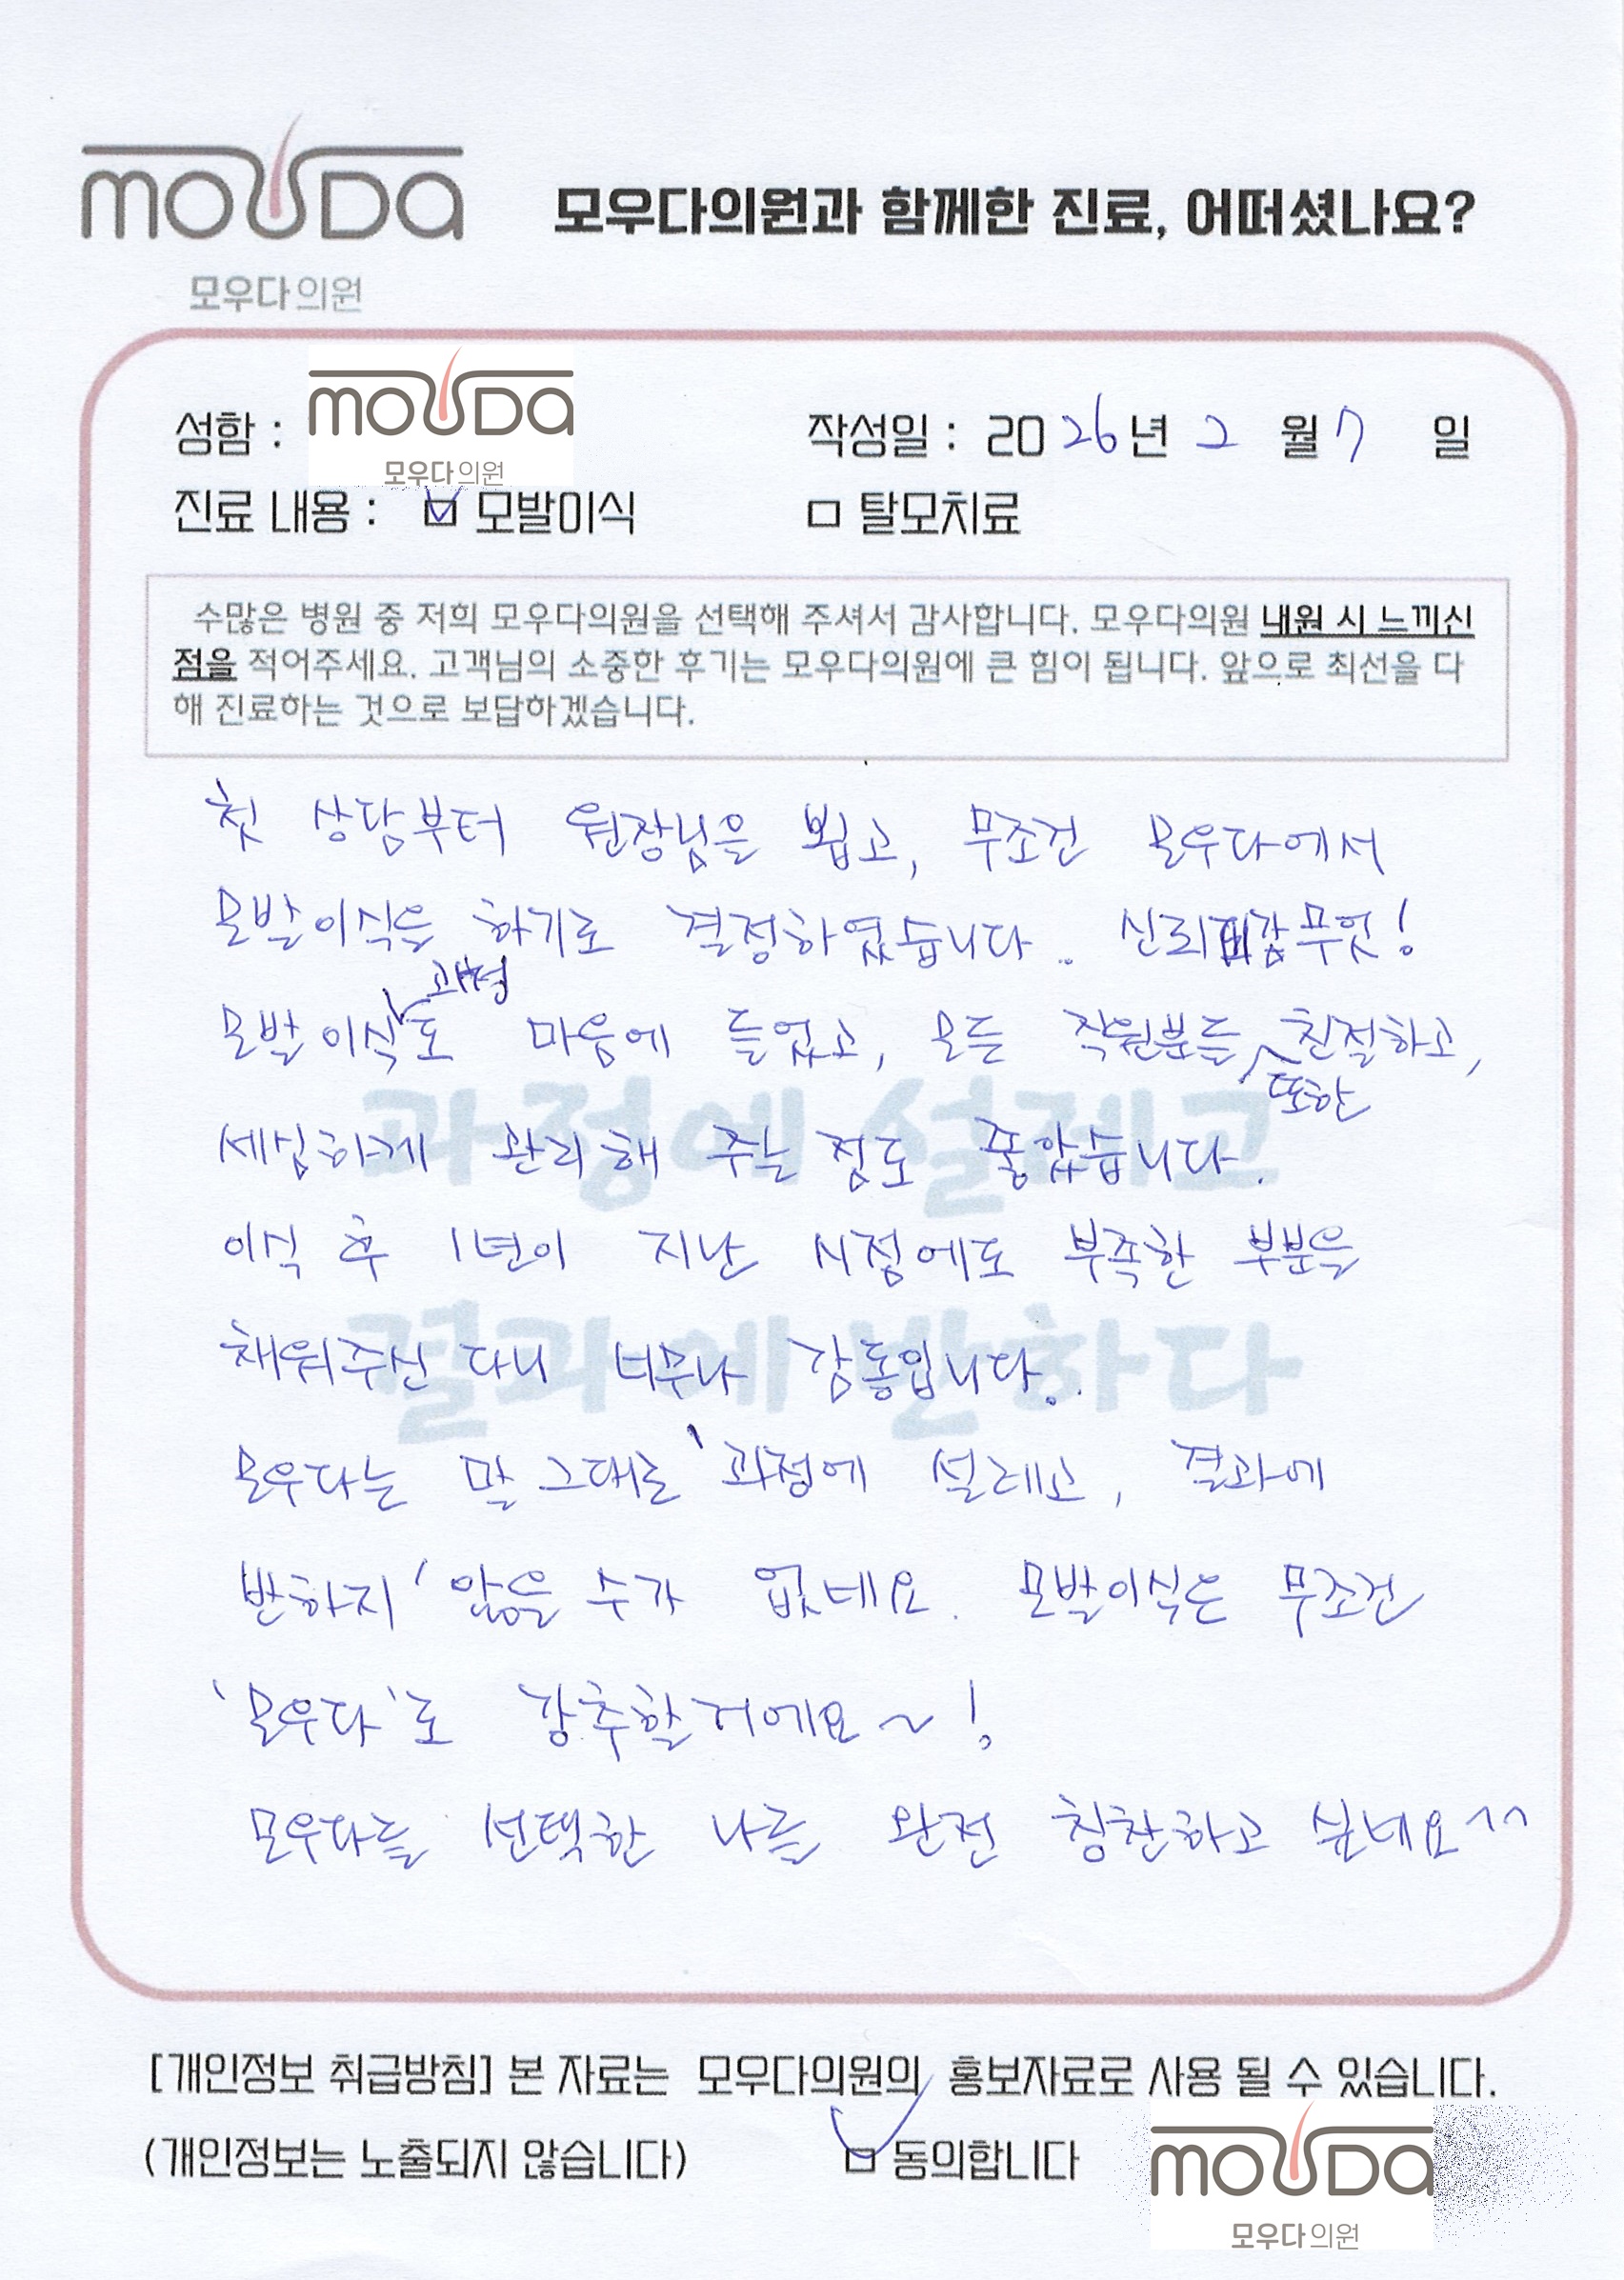 mouDa
모우다의원
모우다의원과 함께한 진료, 어떠셨나요?
성함 : mouDa 모우다의원
작성일 : 2026년 2월 7일
진료 내용 : ☑ 모발이식 □ 탈모치료
수많은 병원 중 저희 모우다의원을 선택해 주셔서 감사합니다. 모우다의원 내원 시 느끼신
점을 적어주세요. 고객님의 소중한 후기는 모우다의원에 큰 힘이 됩니다. 앞으로 최선을 다
해 진료하는 것으로 보답하겠습니다.
첫 상담부터 원장님을 뵙고, 무조건 모우다에서
모발이식을 하기로 결정하였습니다. 신뢰감 무엇!
모발이식 과정도 마음에 들었고, 모든 직원분들 또한 친절하고,
세심하게 관리해 주는 점도 좋았습니다.
과정에 설레고
이식 후 1년이 지난 시점에도 부족한 부분을
채워주신 다니 너무나 감동입니다.
결과에 반하다
모우다는 말 그대로 '과정에 설레고, 결과에
반하지' 않을 수가 없네요. 모발이식은 무조건
'모우다'로 강추할거에요~!
모우다를 선택한 나를 완전 칭찬하고 싶네요^^
[개인정보 취급방침] 본 자료는 모우다의원의 홍보자료로 사용 될 수 있습니다.
(개인정보는 노출되지 않습니다) ☑ 동의합니다
mouDa
모우다의원